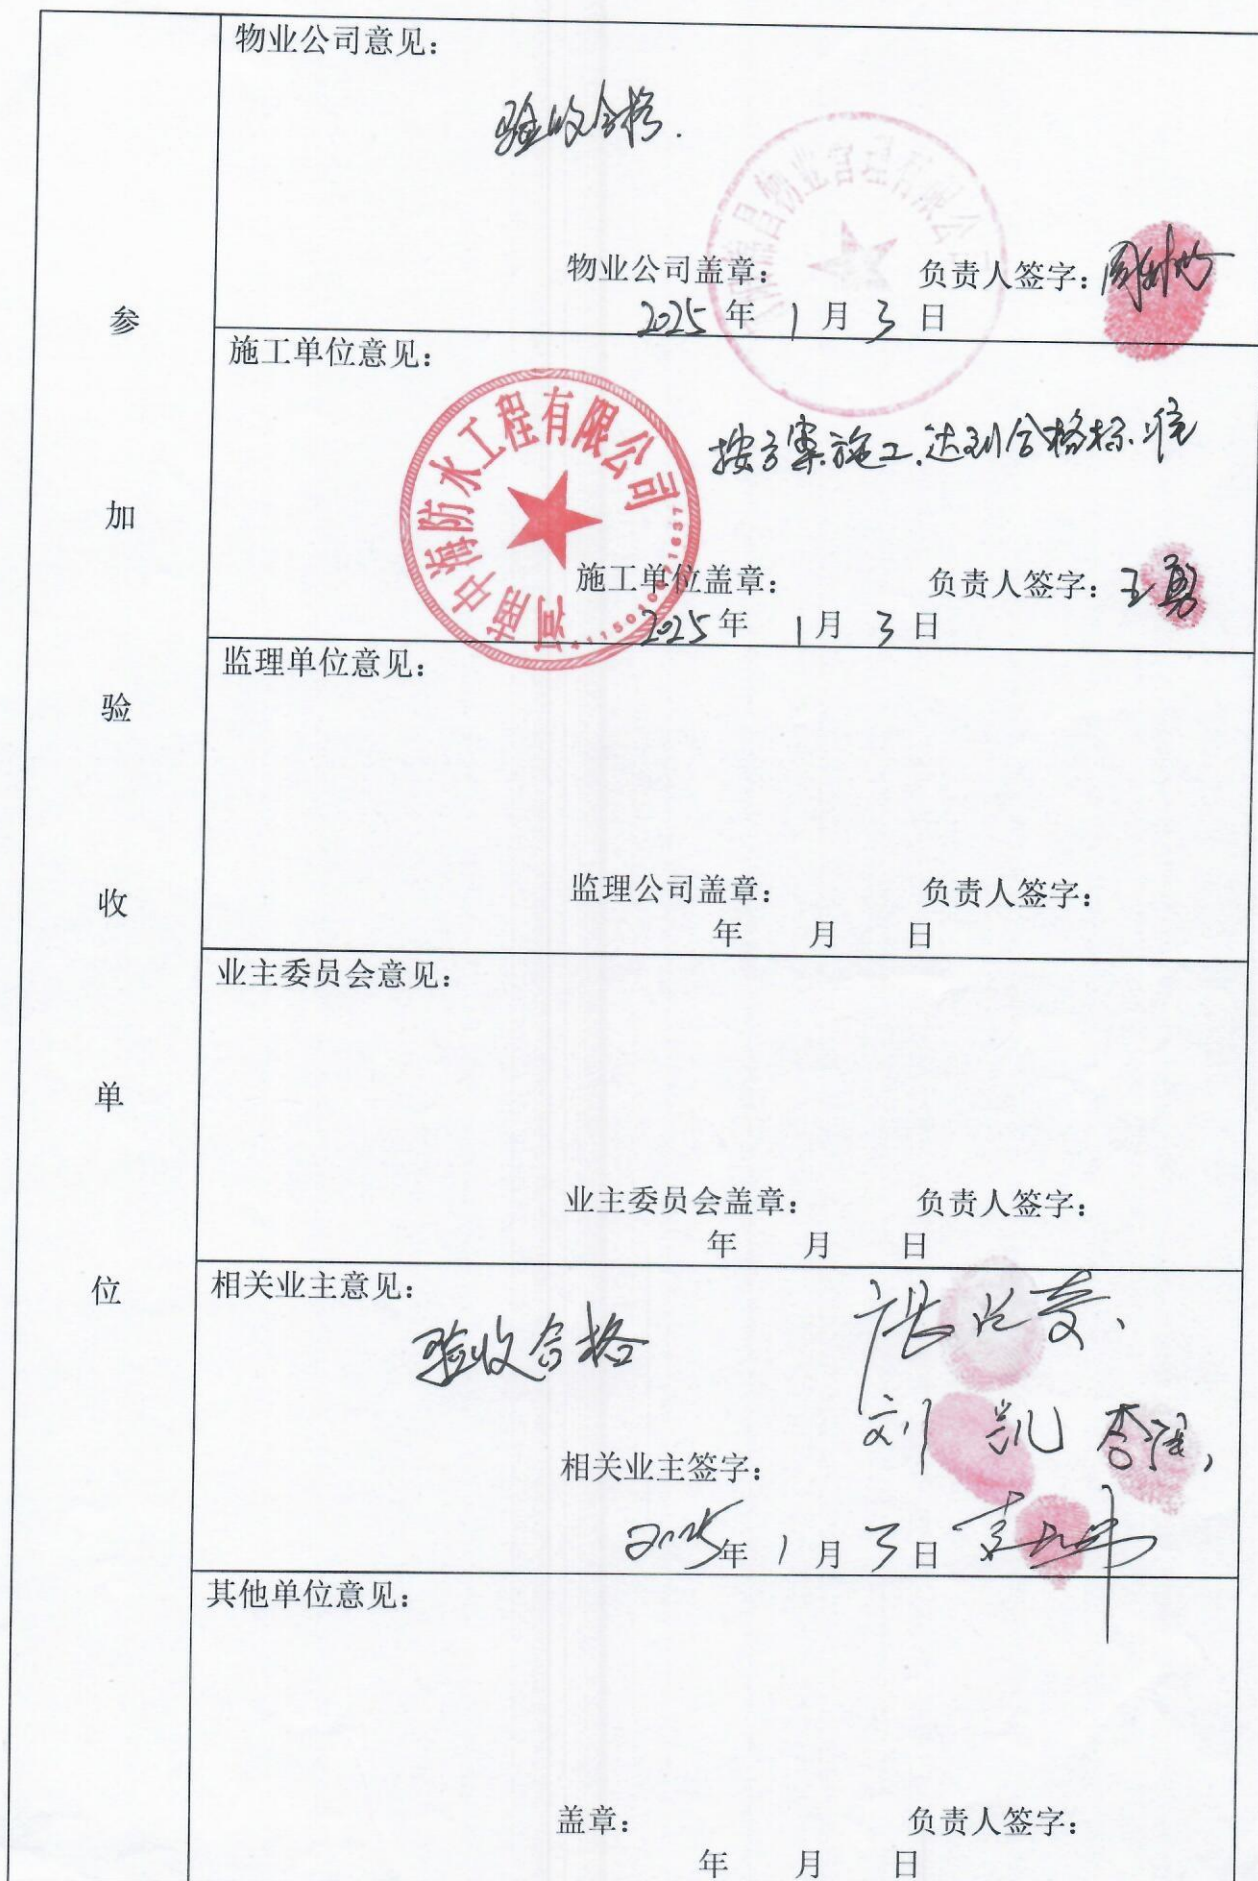 物业公司意见：
验收合格.
昌物业管理有限公司
物业公司盖章： 负责人签字：
2025年 1月 3日
参加验收单位
施工单位意见：
河南中海防水工程有限公司
按方案施工,达到合格标准
施工单位盖章： 负责人签字：王勇
2025年 1月 3日
监理单位意见：
监理公司盖章： 负责人签字：
年 月 日
业主委员会意见：
业主委员会盖章： 负责人签字：
年 月 日
相关业主意见：
验收合格
刘凯
相关业主签字：
2025年 1月 3日
其他单位意见：
盖章： 负责人签字：
年 月 日